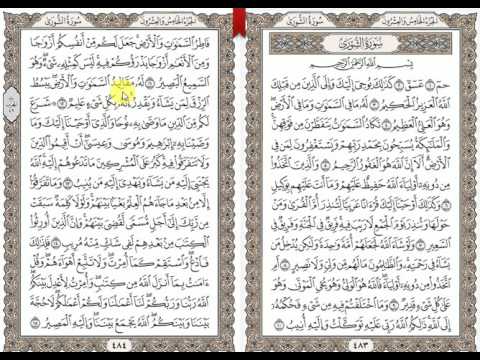 سُورَةُ الشُّورَىٰ
الجُزْءُ الخَامِسُ وَالعِشْرُونَ
سُورَةُ الشُّورَىٰ
بِسْمِ ٱللَّهِ ٱلرَّحْمَٰنِ ٱلرَّحِيمِ
حمٓ ١ عٓسٓقٓ ٢ كَذَٰلِكَ يُوحِىٓ إِلَيْكَ وَإِلَى ٱلَّذِينَ مِن قَبْلِكَ
ٱللَّهُ ٱلْعَزِيزُ ٱلْحَكِيمُ ٣ لَهُۥ مَا فِى ٱلسَّمَٰوَٰتِ وَمَا فِى ٱلْأَرْضِ
وَهُوَ ٱلْعَلِىُّ ٱلْعَظِيمُ ٤ تَكَادُ ٱلسَّمَٰوَٰتُ يَتَفَطَّرْنَ مِن فَوْقِهِنَّ
وَٱلْمَلَٰٓئِكَةُ يُسَبِّحُونَ بِحَمْدِ رَبِّهِمْ وَيَسْتَغْفِرُونَ لِمَن فِى
ٱلْأَرْضِ أَلَآ إِنَّ ٱللَّهَ هُوَ ٱلْغَفُورُ ٱلرَّحِيمُ ٥ وَٱلَّذِينَ ٱتَّخَذُوا۟
مِن دُونِهِۦٓ أَوْلِيَآءَ ٱللَّهُ حَفِيظٌ عَلَيْهِمْ وَمَآ أَنتَ عَلَيْهِم بِوَكِيلٍ
٦ وَكَذَٰلِكَ أَوْحَيْنَآ إِلَيْكَ قُرْءَانًا عَرَبِيًّا لِّتُنذِرَ أُمَّ ٱلْقُرَىٰ وَمَنْ
حَوْلَهَا وَتُنذِرَ يَوْمَ ٱلْجَمْعِ لَا رَيْبَ فِيهِ فَرِيقٌ فِى ٱلْجَنَّةِ وَفَرِيقٌ فِى
ٱلسَّعِيرِ ٧ وَلَوْ شَآءَ ٱللَّهُ لَجَعَلَهُمْ أُمَّةً وَٰحِدَةً وَلَٰكِن يُدْخِلُ مَن
يَشَآءُ فِى رَحْمَتِهِۦ وَٱلظَّٰلِمُونَ مَا لَهُم مِّن وَلِىٍّ وَلَا نَصِيرٍ ٨ أَمِ
ٱتَّخَذُوا۟ مِن دُونِهِۦٓ أَوْلِيَآءَ فَٱللَّهُ هُوَ ٱلْوَلِىُّ وَهُوَ يُحْىِ ٱلْمَوْتَىٰ وَهُوَ
عَلَىٰ كُلِّ شَىْءٍ قَدِيرٌ ٩ وَمَا ٱخْتَلَفْتُمْ فِيهِ مِن شَىْءٍ فَحُكْمُهُۥٓ
إِلَى ٱللَّهِ ذَٰلِكُمُ ٱللَّهُ رَبِّى عَلَيْهِ تَوَكَّلْتُ وَإِلَيْهِ أُنِيبُ ١٠
٤٨٣
سُورَةُ الشُّورَىٰ
الجُزْءُ الخَامِسُ وَالعِشْرُونَ
فَاطِرُ ٱلسَّمَٰوَٰتِ وَٱلْأَرْضِ جَعَلَ لَكُم مِّنْ أَنفُسِكُمْ أَزْوَٰجًا
وَمِنَ ٱلْأَنْعَٰمِ أَزْوَٰجًا يَذْرَؤُكُمْ فِيهِ لَيْسَ كَمِثْلِهِۦ شَىْءٌ وَهُوَ
ٱلسَّمِيعُ ٱلْبَصِيرُ ١١ لَهُۥ مَقَالِيدُ ٱلسَّمَٰوَٰتِ وَٱلْأَرْضِ يَبْسُطُ
ٱلرِّزْقَ لِمَن يَشَآءُ وَيَقْدِرُ إِنَّهُۥ بِكُلِّ شَىْءٍ عَلِيمٌ ١٢ شَرَعَ
لَكُم مِّنَ ٱلدِّينِ مَا وَصَّىٰ بِهِۦ نُوحًا وَٱلَّذِىٓ أَوْحَيْنَآ إِلَيْكَ وَمَا
وَصَّيْنَا بِهِۦٓ إِبْرَٰهِيمَ وَمُوسَىٰ وَعِيسَىٰٓ أَنْ أَقِيمُوا۟ ٱلدِّينَ
وَلَا تَتَفَرَّقُوا۟ فِيهِ كَبُرَ عَلَى ٱلْمُشْرِكِينَ مَا تَدْعُوهُمْ إِلَيْهِ ٱللَّهُ
يَجْتَبِىٓ إِلَيْهِ مَن يَشَآءُ وَيَهْدِىٓ إِلَيْهِ مَن يُنِيبُ ١٣ وَمَا تَفَرَّقُوٓا۟
إِلَّا مِنۢ بَعْدِ مَا جَآءَهُمُ ٱلْعِلْمُ بَغْيًۢا بَيْنَهُمْ وَلَوْلَا كَلِمَةٌ سَبَقَتْ
مِن رَّبِّكَ إِلَىٰٓ أَجَلٍ مُّسَمًّى لَّقُضِىَ بَيْنَهُمْ وَإِنَّ ٱلَّذِينَ أُورِثُوا۟
ٱلْكِتَٰبَ مِنۢ بَعْدِهِمْ لَفِى شَكٍّ مِّنْهُ مُرِيبٍ ١٤ فَلِذَٰلِكَ
فَٱدْعُ وَٱسْتَقِمْ كَمَآ أُمِرْتَ وَلَا تَتَّبِعْ أَهْوَآءَهُمْ وَقُلْ
ءَامَنتُ بِمَآ أَنزَلَ ٱللَّهُ مِن كِتَٰبٍ وَأُمِرْتُ لِأَعْدِلَ بَيْنَكُمُ
ٱللَّهُ رَبُّنَا وَرَبُّكُمْ لَنَآ أَعْمَٰلُنَا وَلَكُمْ أَعْمَٰلُكُمْ لَا حُجَّةَ
بَيْنَنَا وَبَيْنَكُمُ ٱللَّهُ يَجْمَعُ بَيْنَنَا وَإِلَيْهِ ٱلْمَصِيرُ ١٥
٤٨٤